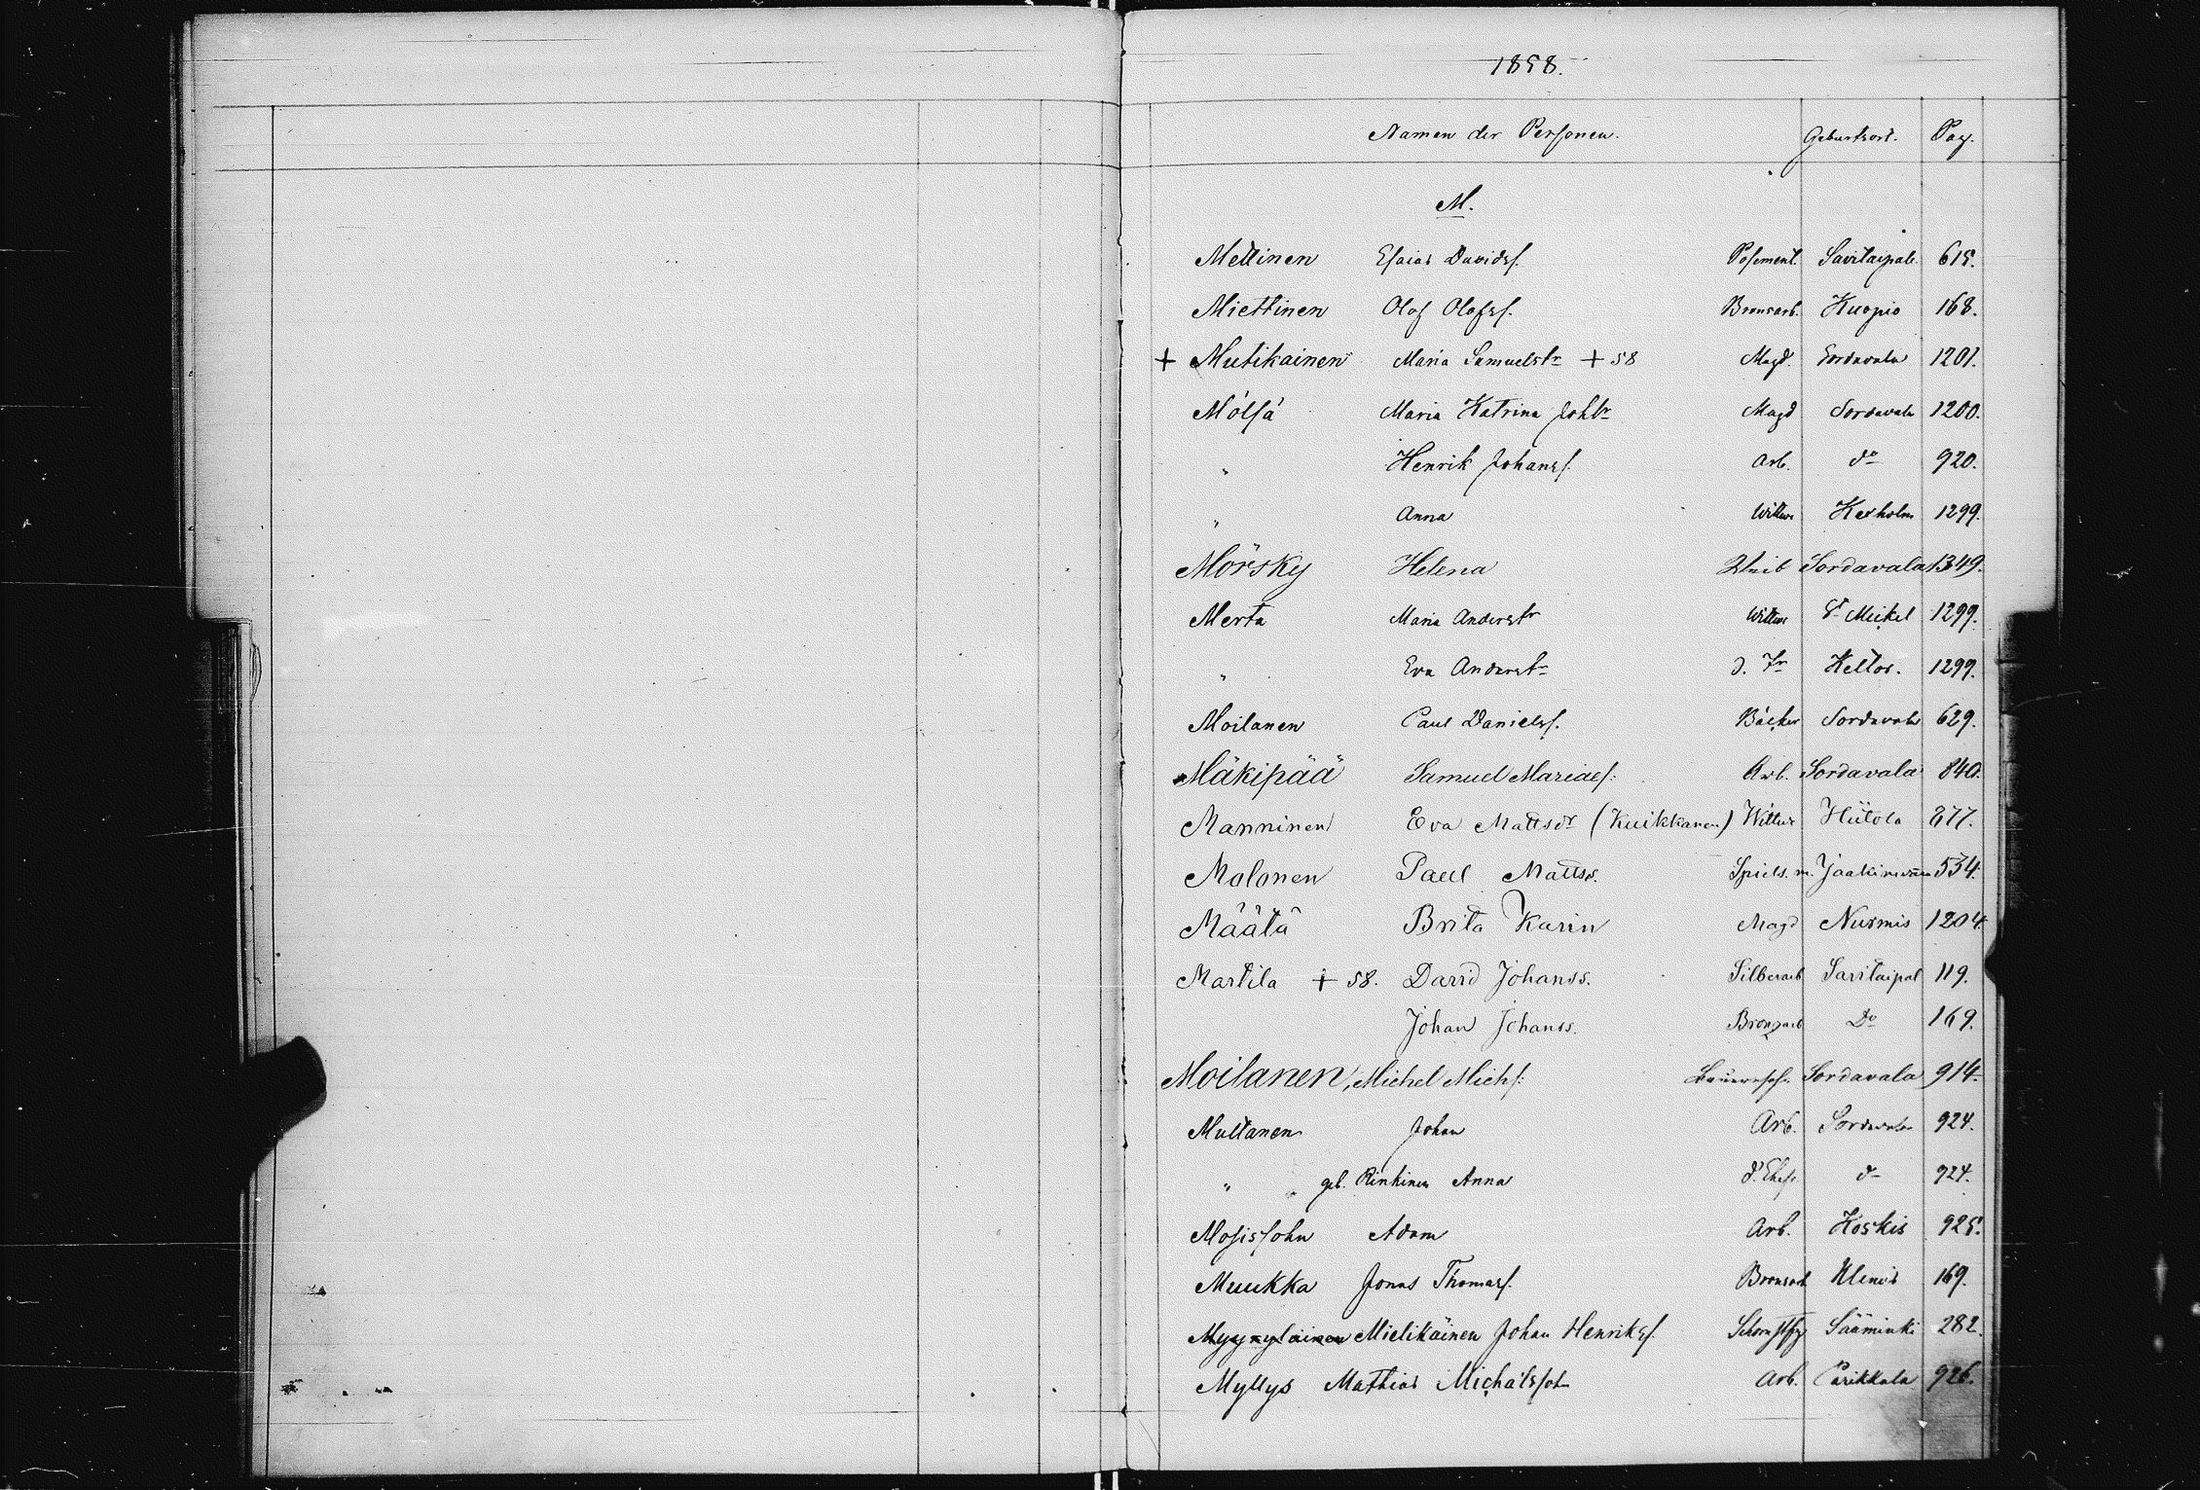 1858.
Namen der Personen. Geburtsort. Pag.
M.
Mettinen Esaias Davids. Posement. Savitaipale 615.
Miettinen Olof Olofs. Bronsarb. Kuopio 168.
+ Mutikainen Maria Samuelstr + 58 Magd. Sordavala 1201.
Mölsä Maria Katrina Johtr Magd Sordavala 1200.
" Henrik Johans. Arb. do 920.
" Anna Wittwe Kexholm 1299.
Mörsky Helena Weib Sordavala 1349.
Merta Maria Anderstr Wittwe St Meikel 1299.
" Eva Anderstr d. Tr Keltos. 1299.
Moilanen Paul Daniels. Bäcker Sordavala 629.
Mäkipää Samuel Marias: Arb. Sordavala 840.
Manninen Eva Mattsdr (Kuikkanen) Wittwe Hiitola 877.
Molonen Paul Mattss. Spiels. m. Jaakimvara 534.
Määtä Brita Karin Magd Nurmis 1204.
Martila + 58. David Johanss. Silberarb Savitaipal 119.
Johan Johanss. Bronzarb Do 169.
Moilanen, Michel Michs: Sordavala 914.
Multanen Johan Arb. Sordavala 924.
" " geb. Rinkinen Anna d. Ehefr do 924.
Mosissohn Adam Arb. Koskis 925.
Muukka Jonas Thomas. Bronsarb Klemis 169.
Myyryläinen Mielikäinen Johan Henriks. Schornstfg Sääminki 282.
Myllys Mathias Michälssohn Arb. Parikkala 926.